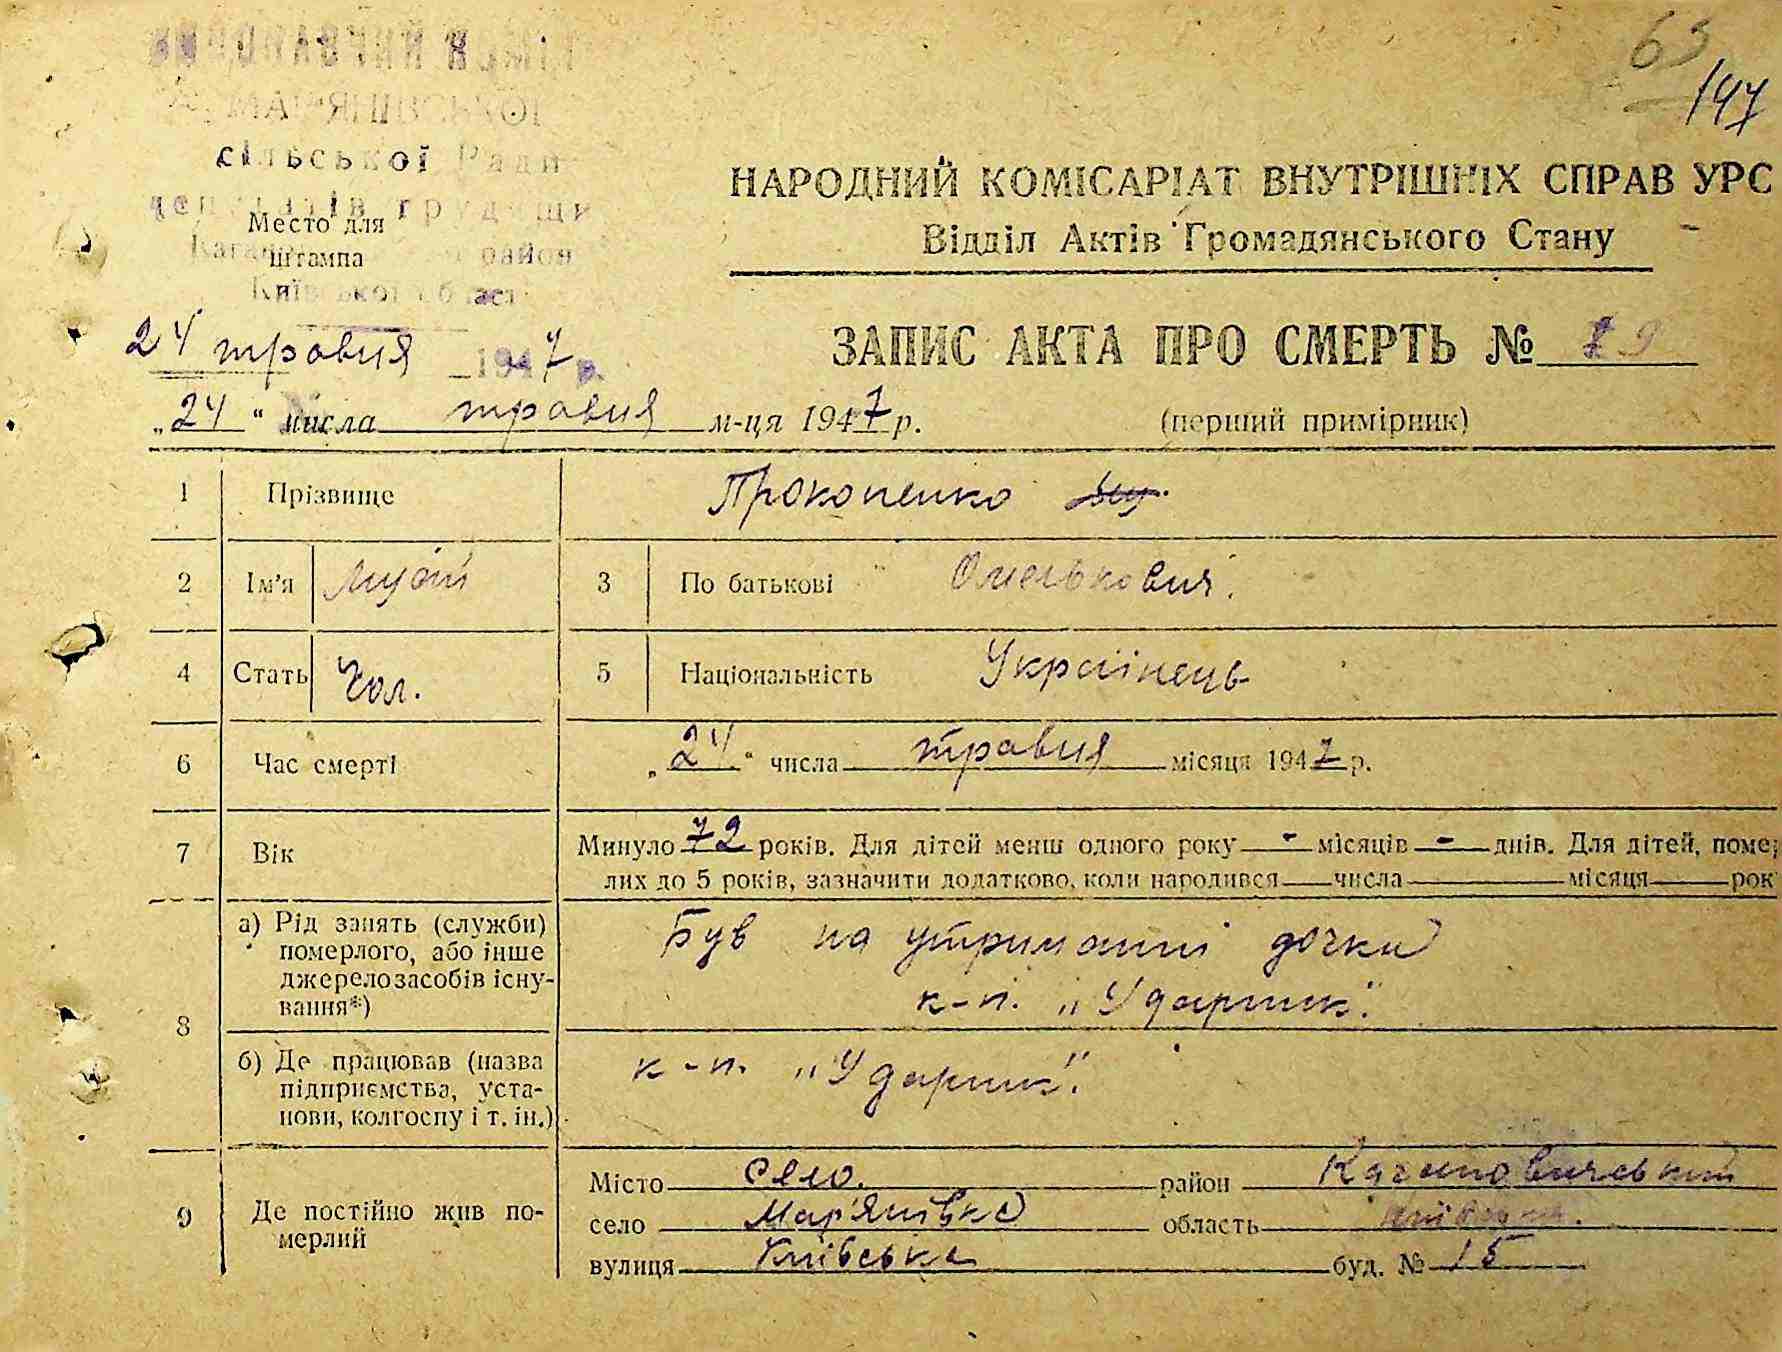 63
197
МАР'ЯНІВСЬКОЇ
сільської Ради
депутатів трудящих
Место для
штампа
район
Київської області
НАРОДНИЙ КОМІСАРІАТ ВНУТРІШНІХ СПРАВ УРС
Відділ Актів Громадянського Стану
24 травня 1947 р.
ЗАПИС АКТА ПРО СМЕРТЬ № 19
„24“ числа травня м-ця 1947 р. (перший примірник)
1 Прізвище Прокопенко
2 Ім'я Мусій 3 По батькові Омелькович.
4 Стать Чол. 5 Національність Українець
6 Час смерті „24“ числа травня місяця 1947 р.
7 Вік Минуло 72 років. Для дітей менш одного року - місяців - днів. Для дітей, поме
лих до 5 років, зазначити додатково, коли народився числа місяця рок
8 а) Рід занять (служби) померлого, або інше джерело засобів існування*) Був на утриманні дочки
к-п. „Ударник".
б) Де працював (назва підприємства, установи, колгоспу і т. ін.) к-п. „Ударник".
9 Де постійно жив померлий Місто село. район Кагановичський
село Мар'янівка область Київська.
вулиця Київська буд. № 15